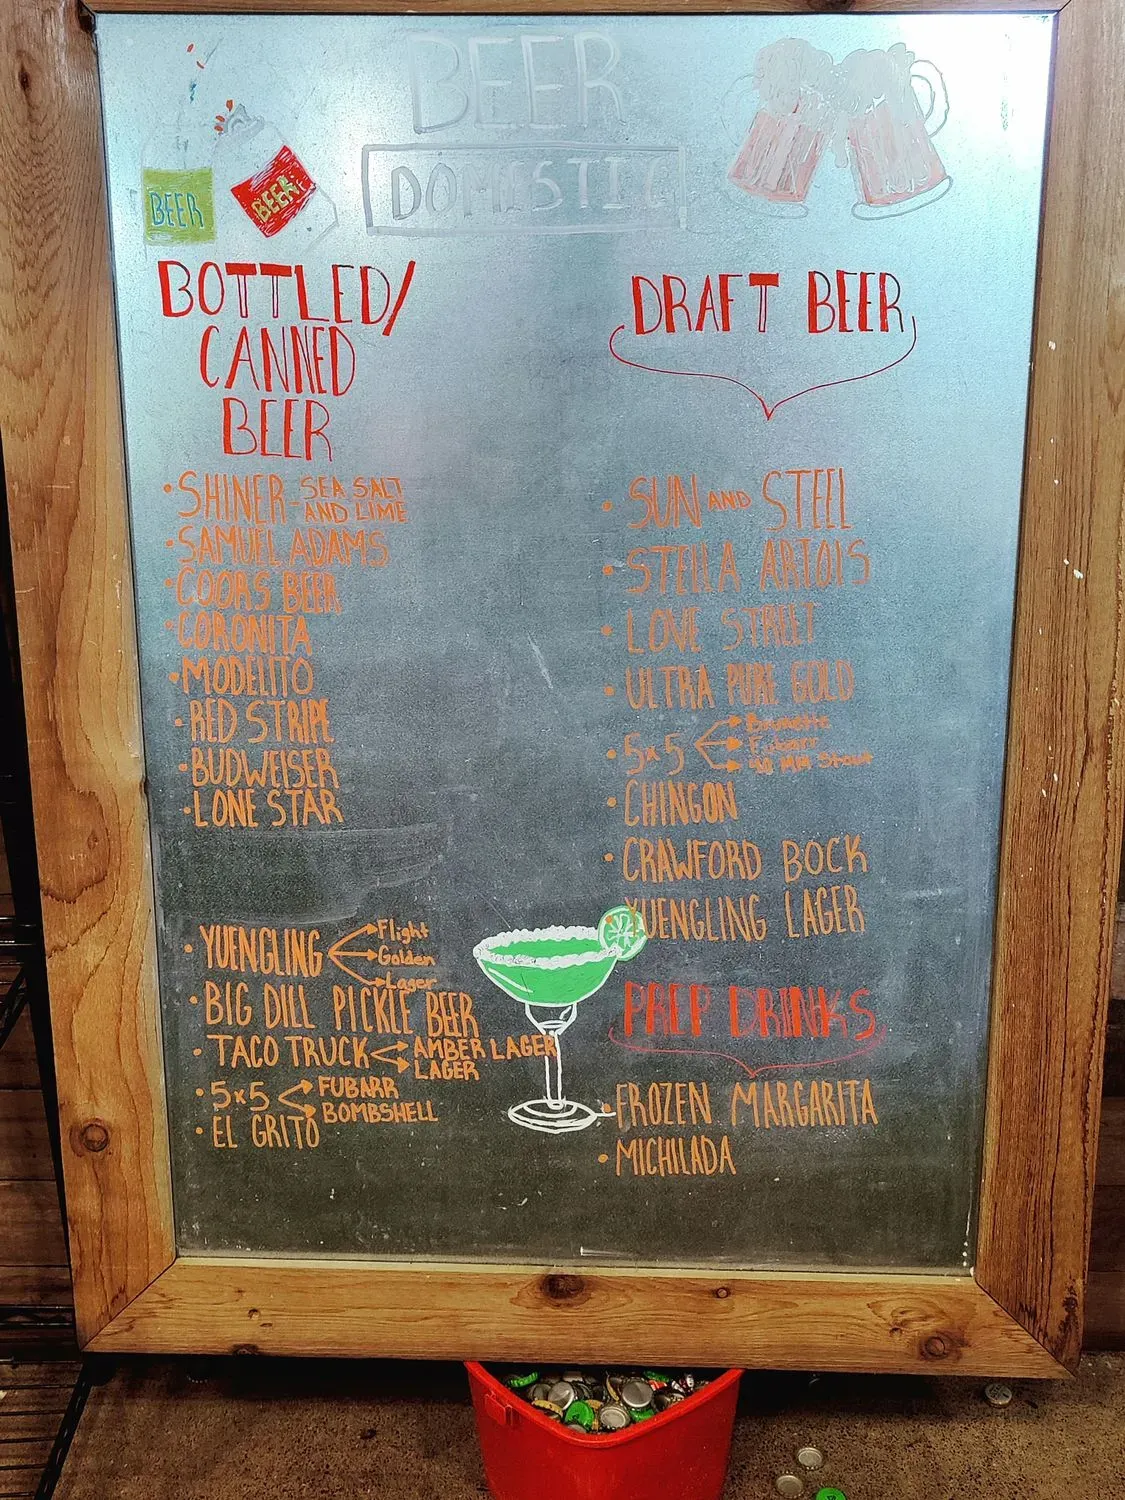 BEER
DOMESTIC
BEER
BEER
BOTTLED/
CANNED
BEER
• SHINER - SEA SALT
AND LIME
• SAMUEL ADAMS
• COORS BEER
• CORONITA
• MODELITO
• RED STRIPE
• BUDWEISER
• LONE STAR
• YUENGLING
Flight
Golden
Lager
• BIG DILL PICKLE BEER
• TACO TRUCK
AMBER LAGER
LAGER
• 5x5
FUBARR
BOMBSHELL
• EL GRITO
DRAFT BEER
• SUN AND STEEL
• STELLA ARTOIS
• LOVE STREET
• ULTRA PURE GOLD
• 5x5
Fubarr
Stout
• CHINGON
• CRAWFORD BOCK
• YUENGLING LAGER
PREP DRINKS
• FROZEN MARGARITA
• MICHILADA